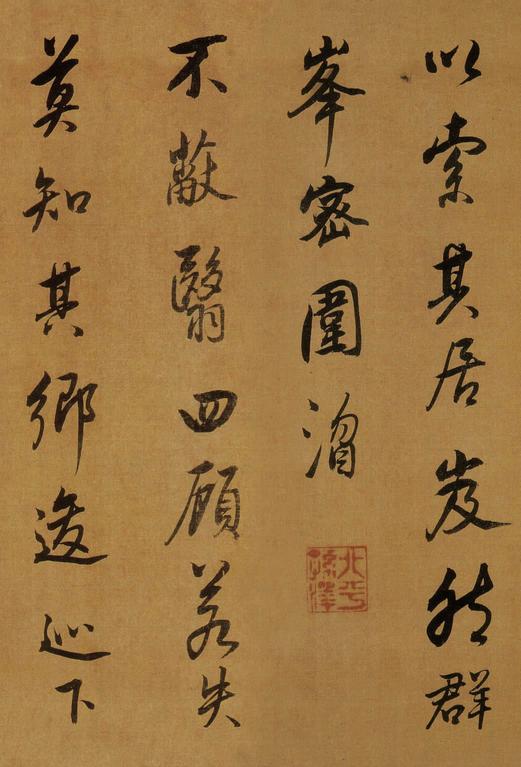 以索其居岌然群
峯密圍
不蔽翳四顧若失
莫知其鄉逡巡下
北平孫澤